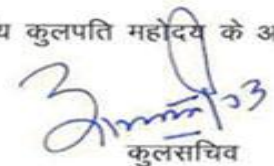 य कुलपति महोदय के अ
कुलसचिव